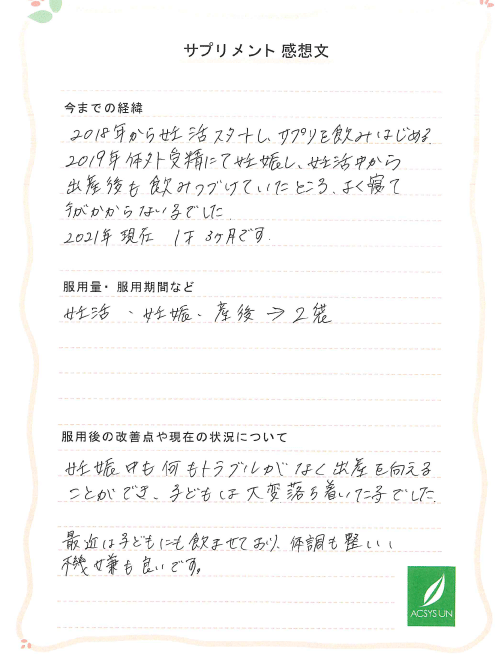 サプリメント 感想文
今までの経緯
2018年から妊活スタートし、サプリを飲みはじめる。
2019年体外受精にて妊娠し、妊活中から
出産後も飲みつづけていたところ、よく寝て
手がかからない子でした。
2021年現在 1才3ヶ月です.
服用量・服用期間など
妊活、妊娠、産後 → 2袋
服用後の改善点や現在の状況について
妊娠中も何もトラブルがなく出産を向える
ことができ、子どもは大変落ち着いた子でした.
最近は子どもにも飲ませており、体調も整いい
機嫌も良いです。
ACSYS UN